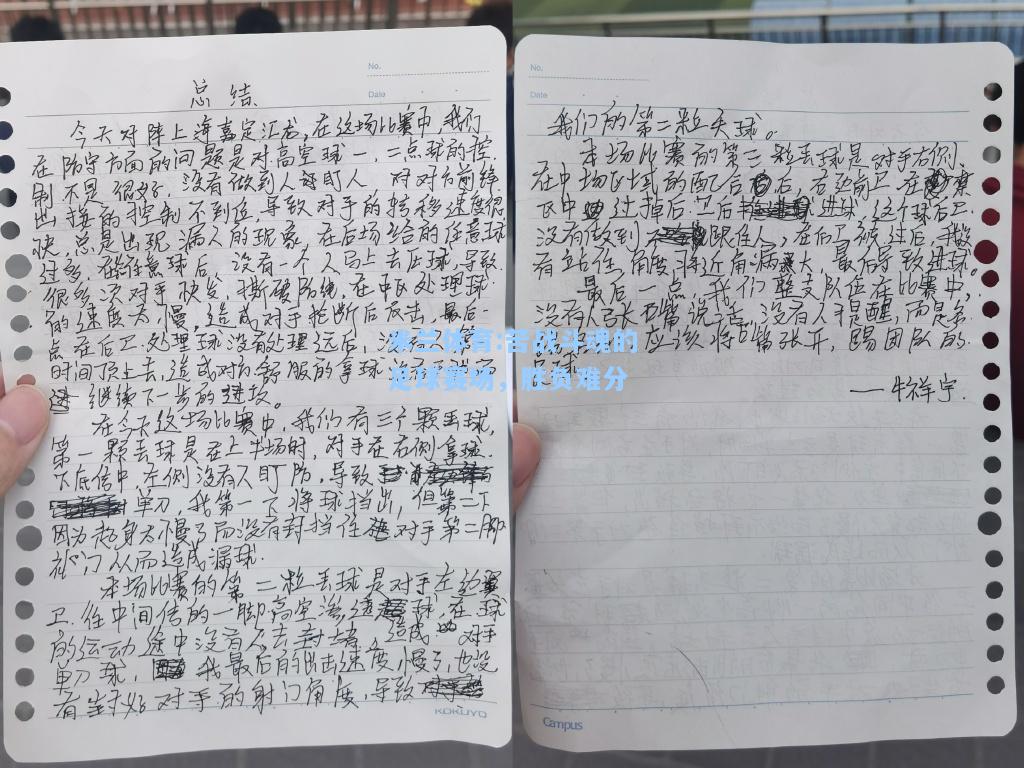 No.
Date
总结
今天对阵上海嘉定汇龙,在这场比赛中,我们
在防守方面的问题是对高空球一、二点球的控
制不是很好,没有做到人盯人,对对方前锋
出接的控制不到位,导致对手的转移速度很
快,总是出现漏人的现象,在后场给的任意球
过多,在任意球后,没有一个人马上去压球,导致
很多次对手快发,撕破防线,在中区处理球
的速度太慢,造成对手抢断后反击,最后一
点在后卫处理球没有处理远后,没
时间顶上去,造成对手舒服的拿球
继续下一步的进攻。
在今天这场比赛中,我们有三个颗丢球,
第一颗丢球是在上半场时,对手在右侧拿球
下底传中,左侧没有人盯防,导致
单刀,我第一下将球挡出,但第二下
因为起身太慢了而没有封挡住对手第二脚
补门从而造成漏球.
本场比赛的第二粒丢球是对手左边
卫,往中间传的一脚高空球,在球
的运动途中没有人去封堵,造成对手
单刀球,我最后的出击速度慢了,也没
有封好对手的射门角度,导致
KOKUYO
No.
Date
我们的第二粒失球。
本场比赛的第三粒丢球是对手右侧,
在中场的配后,右边前卫在
区中过掉后卫后进球,这个球后卫
没有做到跟住人,在后卫被过后,我没
有站住角度,将近角漏大,最后导致进球。
最后一点,我们整支队伍在比赛中,
没有人去说话,没有人提醒,而是
应该将嘴张开,踢团队的
足球.
——牛祥宇.
Campus
米兰体育:苦战斗魂的
足球赛场,胜负难分